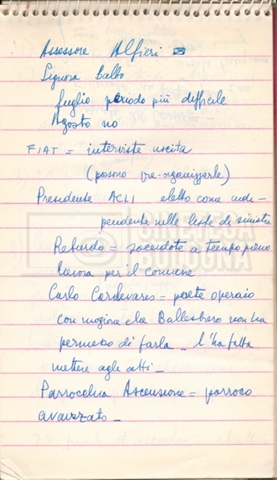 Assessore Alfieri
Signora Balbo
luglio periodo più difficile
Agosto no
FIAT = interviste uscita
(possono pre-organizzarle)
Presidente ACLI eletto come indi-
pendente nelle liste di sinistra
= sacerdote a tempo pieno
lavora per il comune
Carlo = prete operaio
con mozione che Ballestrero non ha
permesso di farla - l'ha fatta
mettere agli atti -
Parrocchia Ascensione = parroco
avanzato -